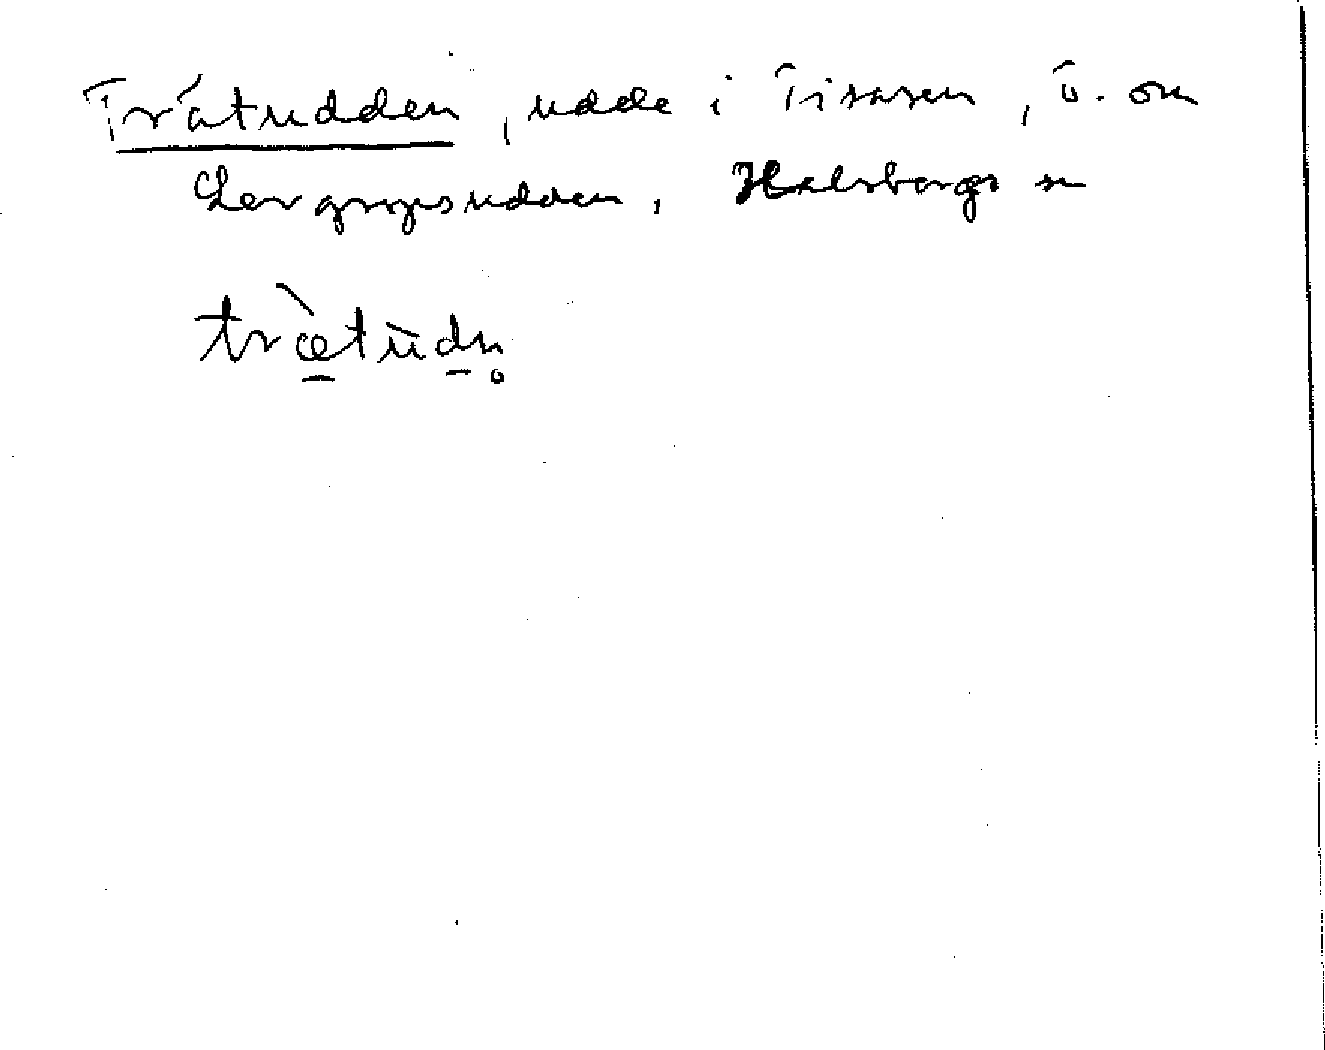 Trätudden, udde i Tisaren, ö. om
Lergropsudden, Hallsbergs sn
træ̀tùdn̥